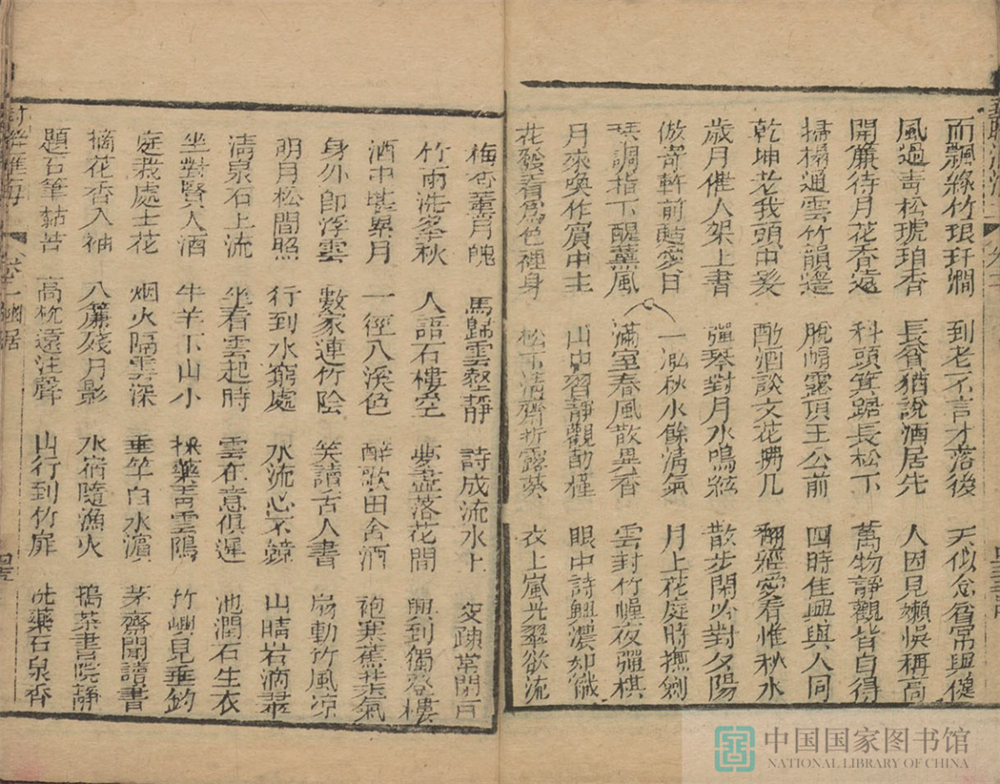 而飄絲竹琅玕澗 到老不言才落後 天似念貧常與健
風過青松琥珀香 長貧猶說酒居先 人因見嬾悞稱高
開簾待月花香遠 科頭箕踞長松下 萬物靜觀皆自得
掃榻通雲竹韻邊 脫帽露頂王公前 四時佳興與人同
乾坤老我頭中髮 酌酒談文花興几 翻雅愛看惟秋水
歲月催人架上書 彈琴對月水鳴絃 散步閑吟對夕陽
倣寄軒前延愛日 一泓秋水餘清氣 月上花庭時撫劍
琴調指下醒薰風 滿室春風散異香 雲封竹幄夜彈棋
月來喚作賓中主 山中習靜觀朝槿 眼中詩興濃如
花發看為色裡身 松下清齋折露葵 衣上嵐光翠欲流
梅香董月魄 馬歸雲壑靜 詩成流水上 交疎萬閉戶
竹雨洗冬秋 人語石樓空 夢盡落花間 興到獨登樓
酒中堪累月 一徑入溪色 醉歌田舍酒 袍寒蕉葉氣
身外即浮雲 數家連竹陰 笑讀古人書 扇動竹風涼
明月松間照 行到水窮處 水流心不競 山晴岩滴翠
清泉石上流 坐看雲起時 雲在意俱遲 池潤石生衣
坐對賢人酒 牛羊下山小 採藥青雲隖 竹嶼見垂釣
庭栽處士花 烟火隔雲深 垂竿白水濱 茅齋聞讀書
摘花香入袖 入簾殘月影 水宿隨漁火 搗茶書院靜
題石筆黏苔 高枕遠注聲 山行到竹扉 洗藥石泉香
幽居
中国国家图书馆
NATIONAL LIBRARY OF CHINA